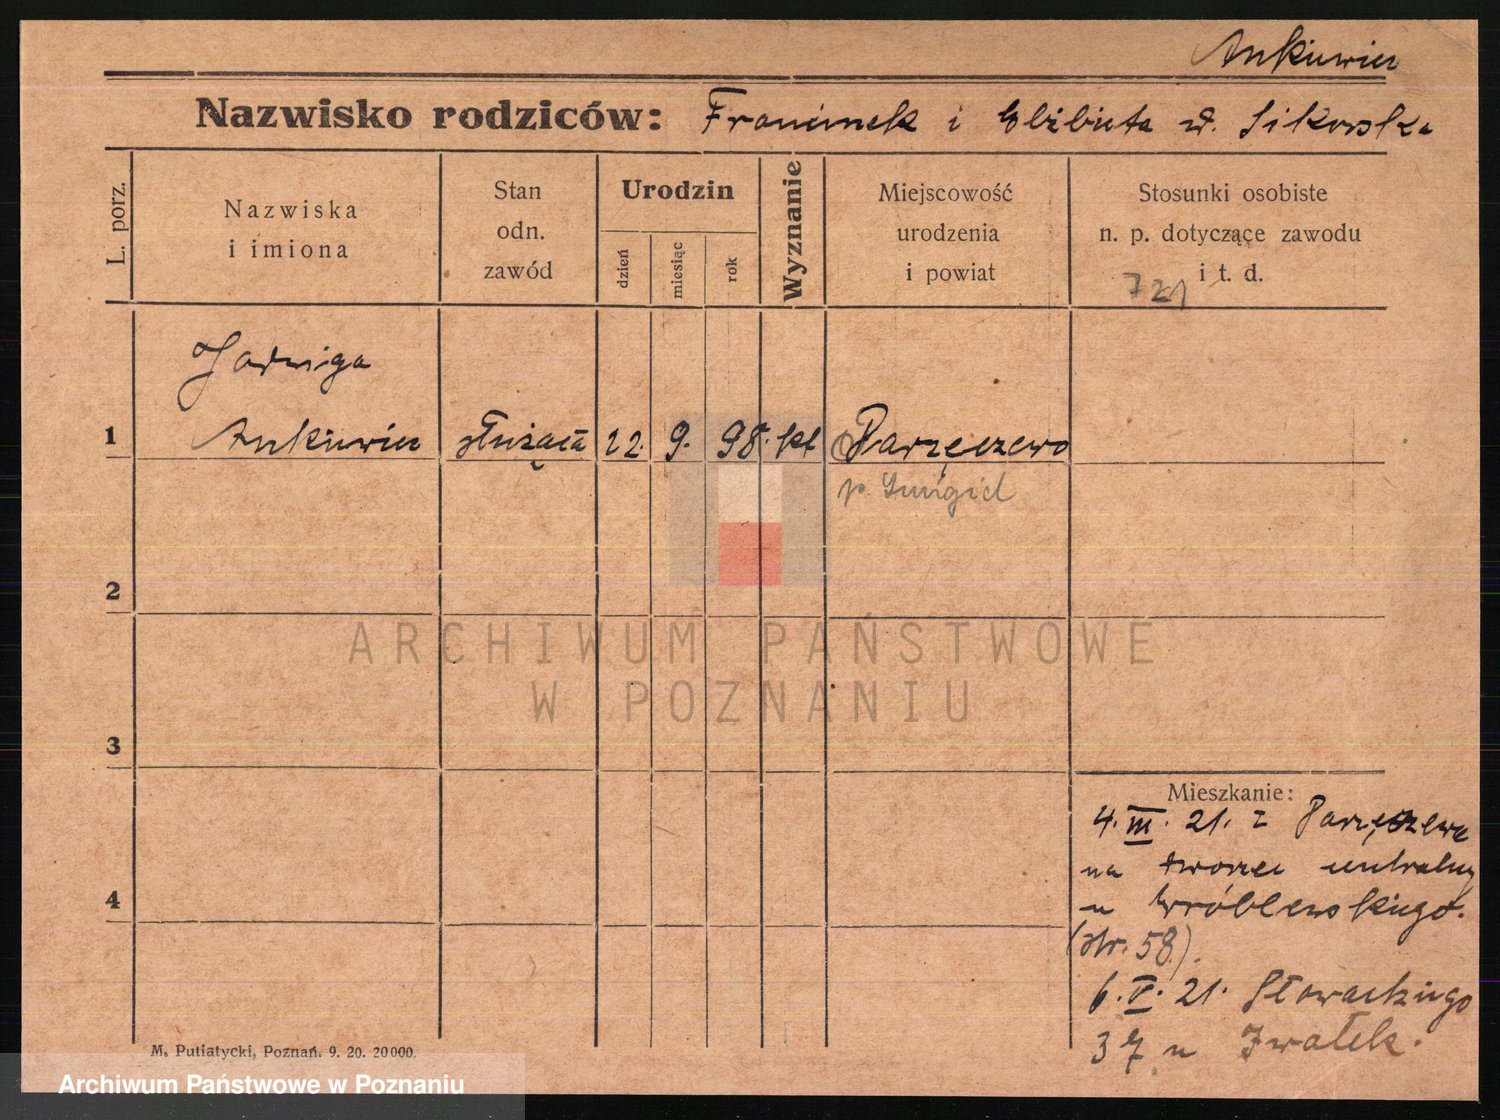 Ankiewicz
Nazwisko rodziców: Franciszek i Elżbieta z d. Sikorska
L. porz.
Nazwiska
i imiona
Stan
odn.
zawód
Urodzin
dzień
miesiąc
rok
Wyznanie
Miejscowość
urodzenia
i powiat
Stosunki osobiste
n. p. dotyczące zawodu
i t. d.
721
Jadwiga
1 Ankiewicz służąca 22. 9. 98. kt Parzęczewo
p. Śmigiel
2
3
4
Mieszkanie:
4. III. 21. z Parzęczewa
na dworzec centralny
u Wróblewskiego.
(str. 58).
6. V. 21. Słowackiego
37 u
M. Putiatycki, Poznań. 9. 20. 20000.
ARCHIWUM PAŃSTWOWE
W POZNANIU
Archiwum Państwowe w Poznaniu